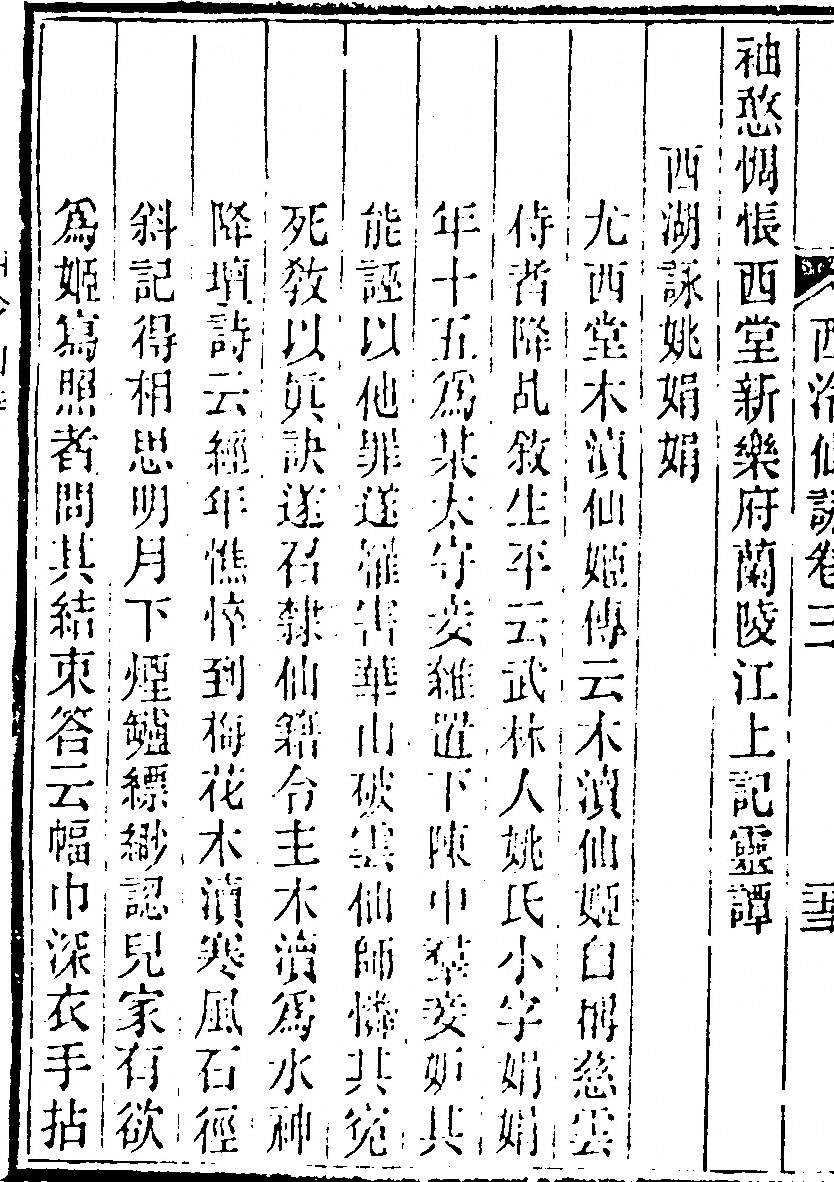 西泠仙詠卷三
袖憨惆悵西堂新樂府蘭陵江上記靈譚
西湖詠姚娟娟
尤西堂木瀆仙姬傳云木瀆仙姬自稱慈雲
侍者降乩敘生平云武林人姚氏小字娟娟
年十五爲某太守妾雖置下陳中羣妾妒其
能誣以他罪遂罹害華山破雲仙師憐其寃
死敎以眞訣遂召隸仙籍令主木瀆爲水神
降壇詩云經年憔悴到梅花木瀆寒風石徑
斜記得相思明月下煙鑪縹緲認兒家有欲
爲姬寫照者問其結束答云幅巾深衣手拈